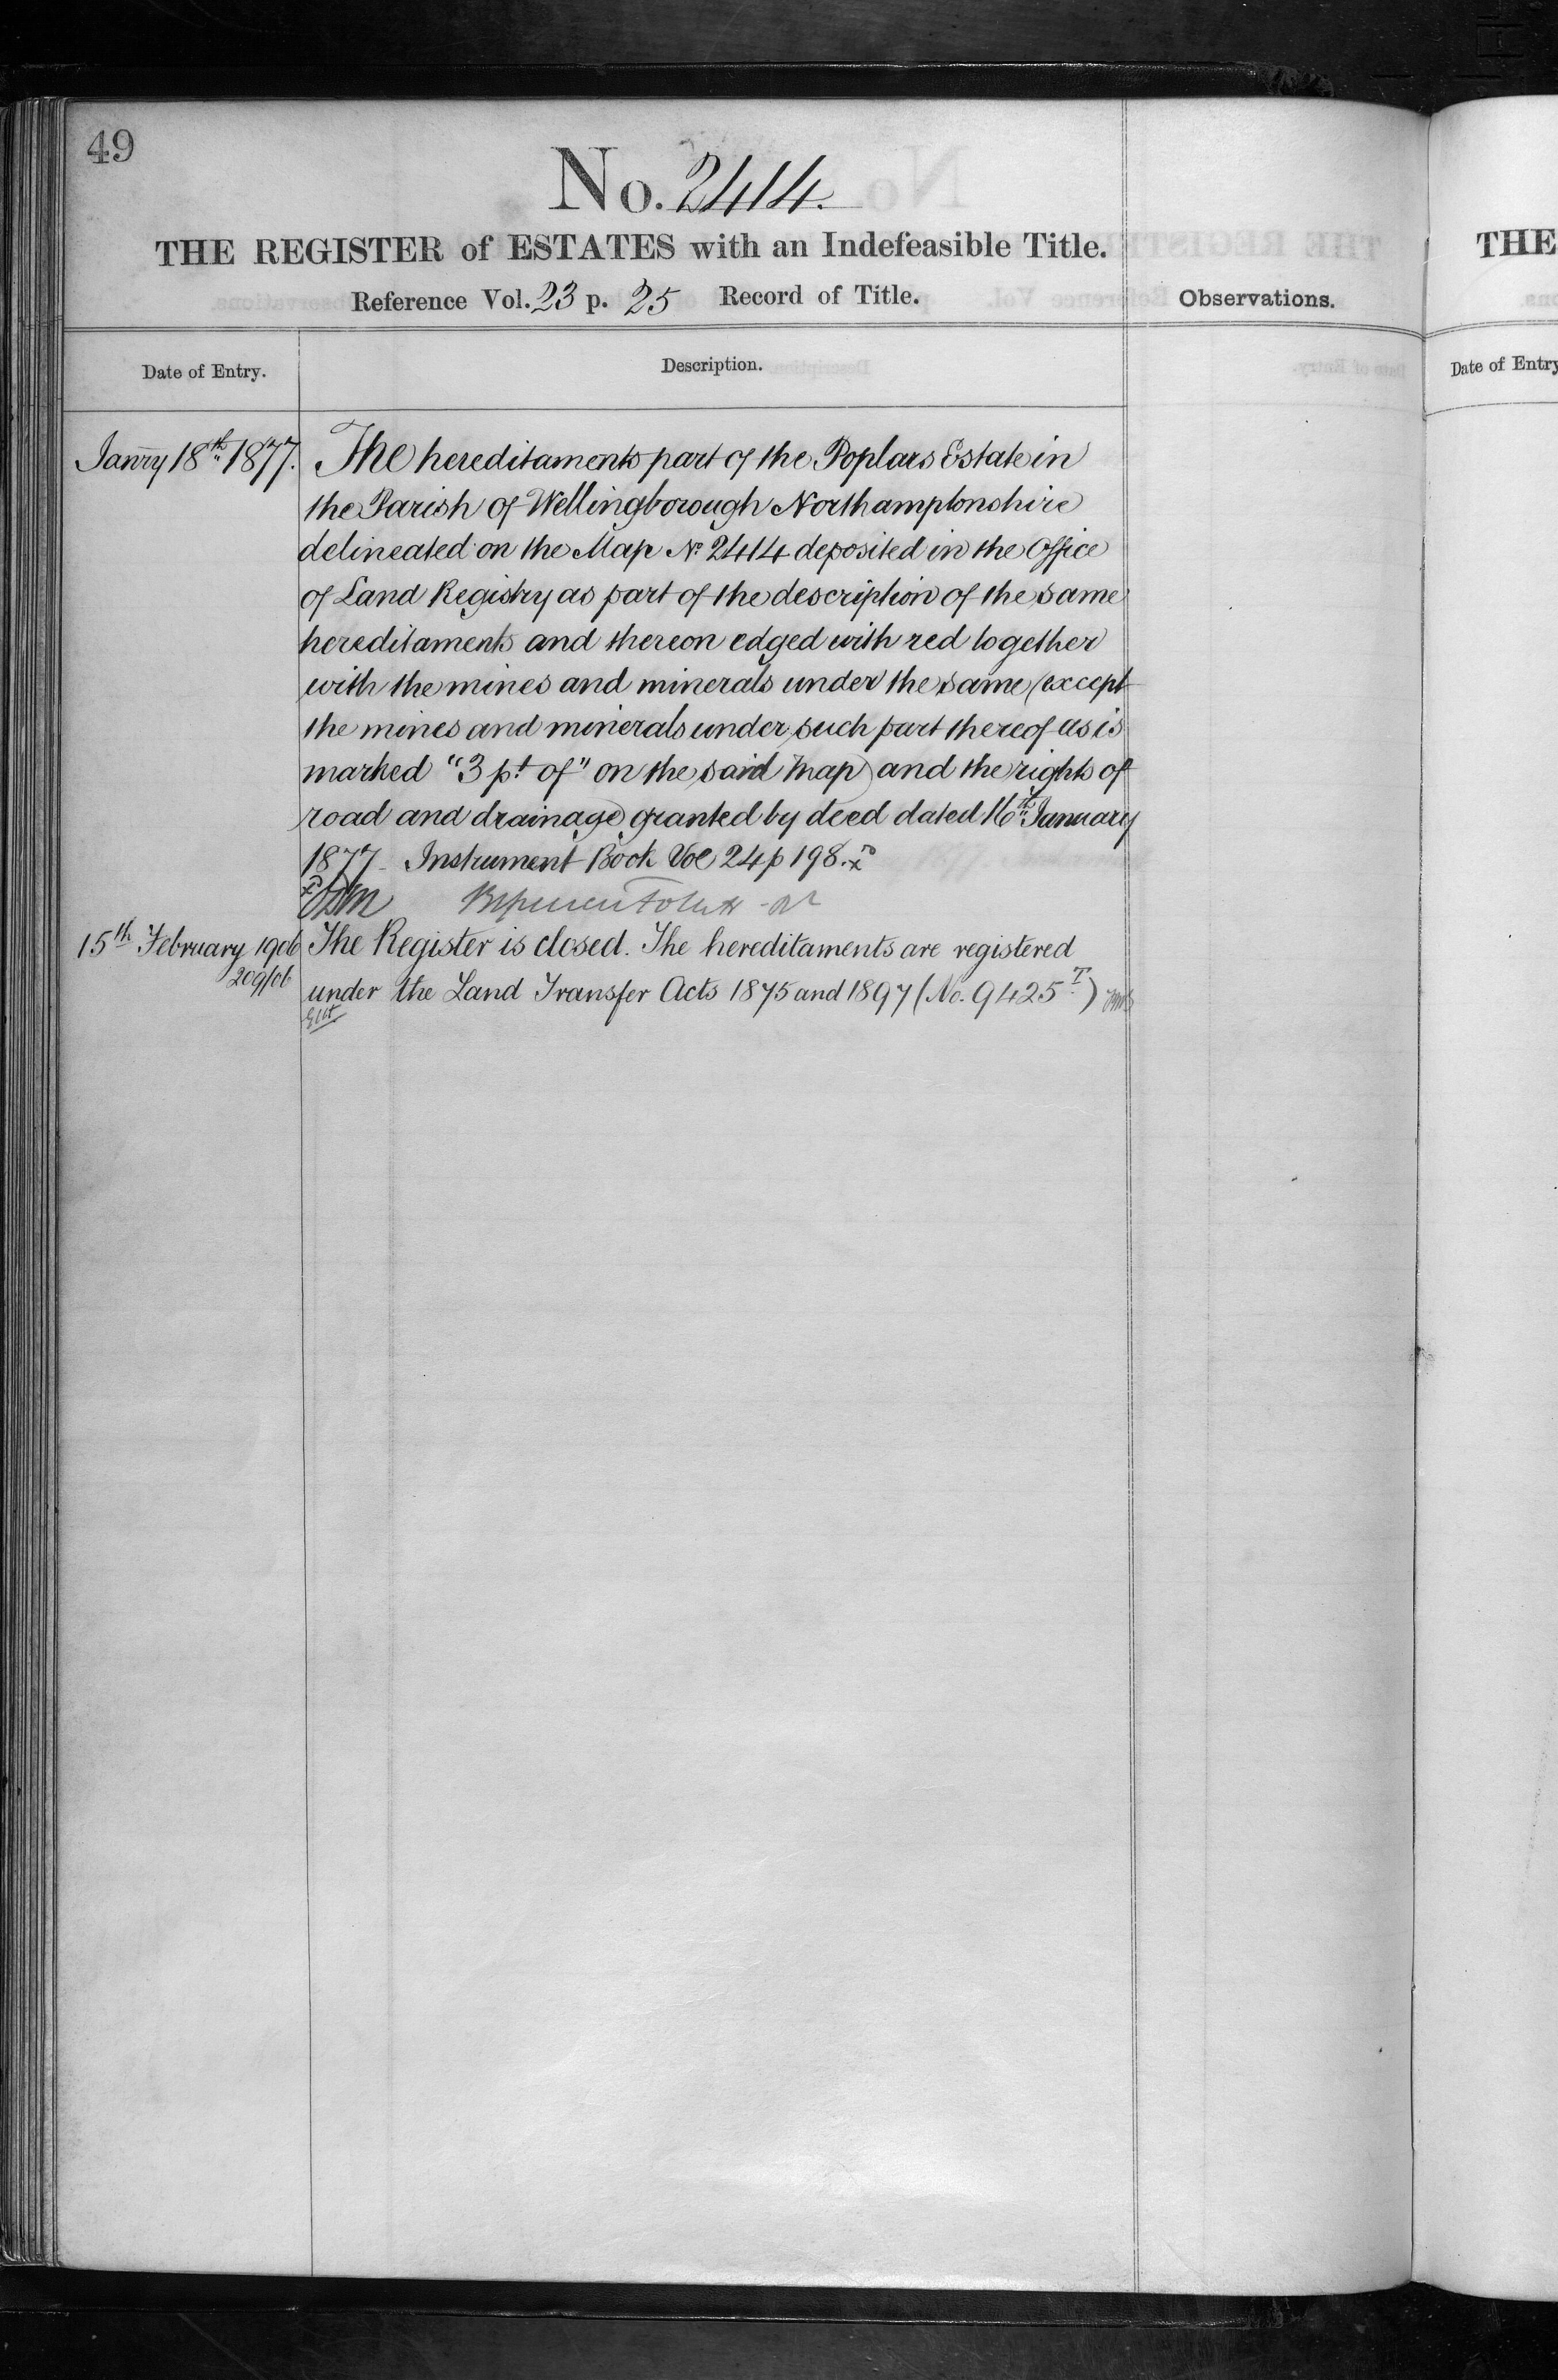 49
No. 2414.
THE REGISTER of ESTATES with an Indefeasible Title.
Reference Vol. 23 p. 25 Record of Title.
Observations.
Date of Entry.
Description.
Janry 18th 1877.
The hereditaments part of the Poplars Estate in
the Parish of Wellingborough Northamptonshire
delineated on the Map No 2414 deposited in the Office
of Land Registry as part of the description of the same
hereditaments and thereon edged with red together
with the mines and minerals under the same (except
the mines and minerals under such part thereof as is
marked "3 pt of" on the said Map) and the rights of
road and drainage granted by deed dated 16th January
1877 - Instrument Book Vol 24 p 198.
15th February 1906
209/06
The Register is closed. The hereditaments are registered
under the Land Transfer Acts 1875 and 1897 (No. 9425 T)
THE
Date of Entry